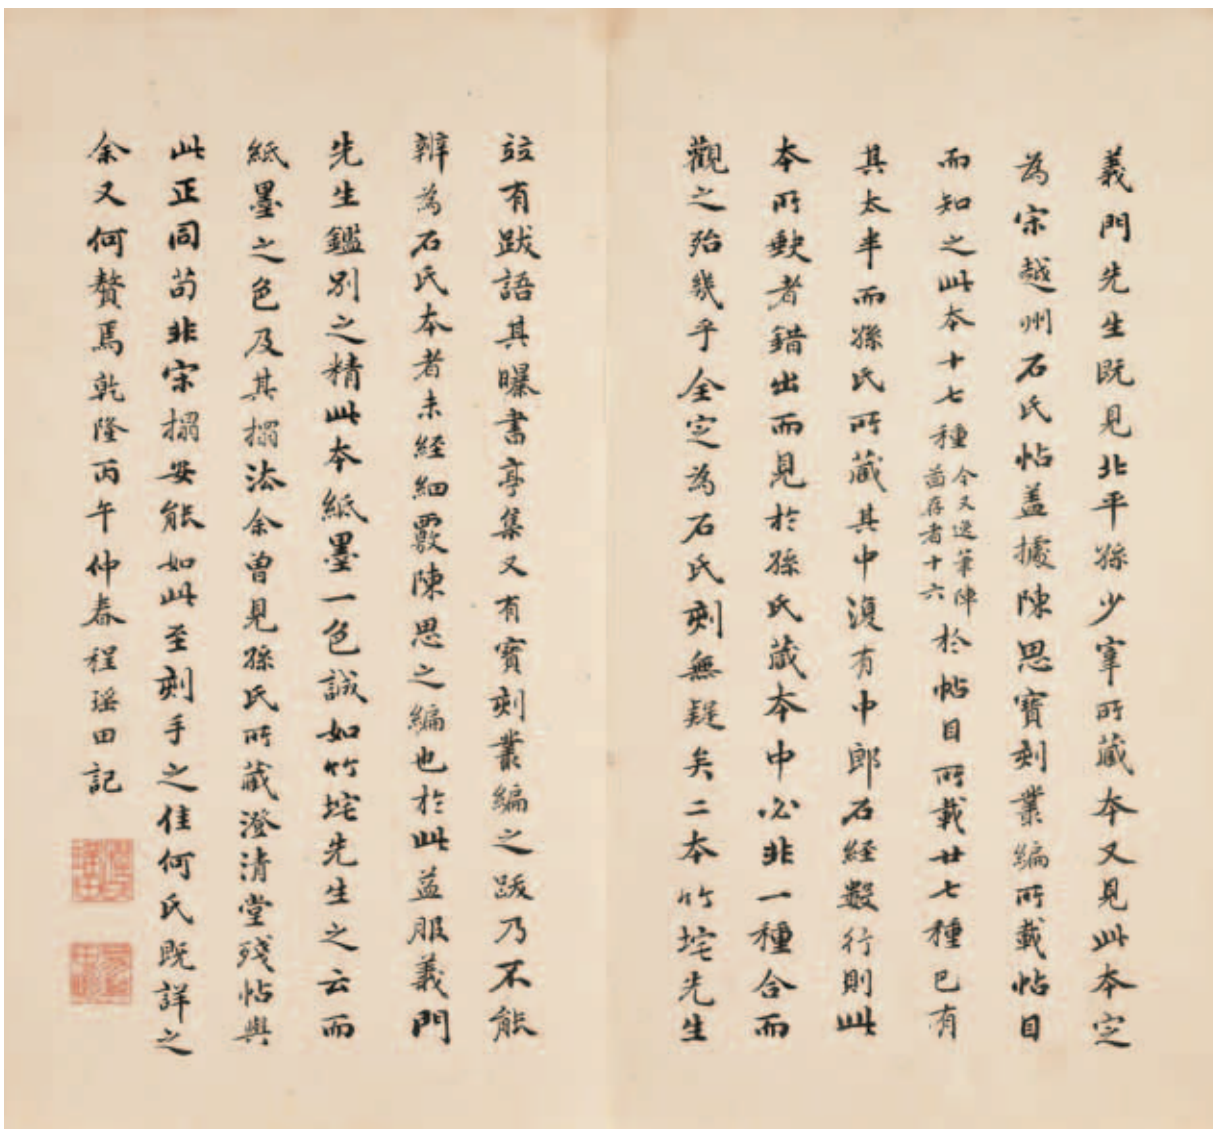 義門先生既見北平孫少宰所藏本又見此本定
為宋越州石氏帖蓋據陳思寶刻叢編所載帖目
而知之此本十七種今又逸筆陣啚存者十六於帖目所載廿七種已有
其太半而孫氏所藏其中復有中郎石經數行則此
本所缺者錯出而見於孫氏藏本中必非一種合而
觀之殆幾乎全定為石氏刻無疑矣二本竹垞先生
竝有跋語其曝書亭集又有寶刻叢編之跋乃不能
辨為石氏本者未經細覈陳思之編也於此益服義門
先生鑑別之精此本紙墨一色誠如竹垞先生之云而
紙墨之色及其搨法余曾見孫氏所藏澄清堂殘帖與
此正同苟非宋搨安能如此至刻手之佳何氏既詳之
余又何贅焉乾隆丙午仲春程瑤田記